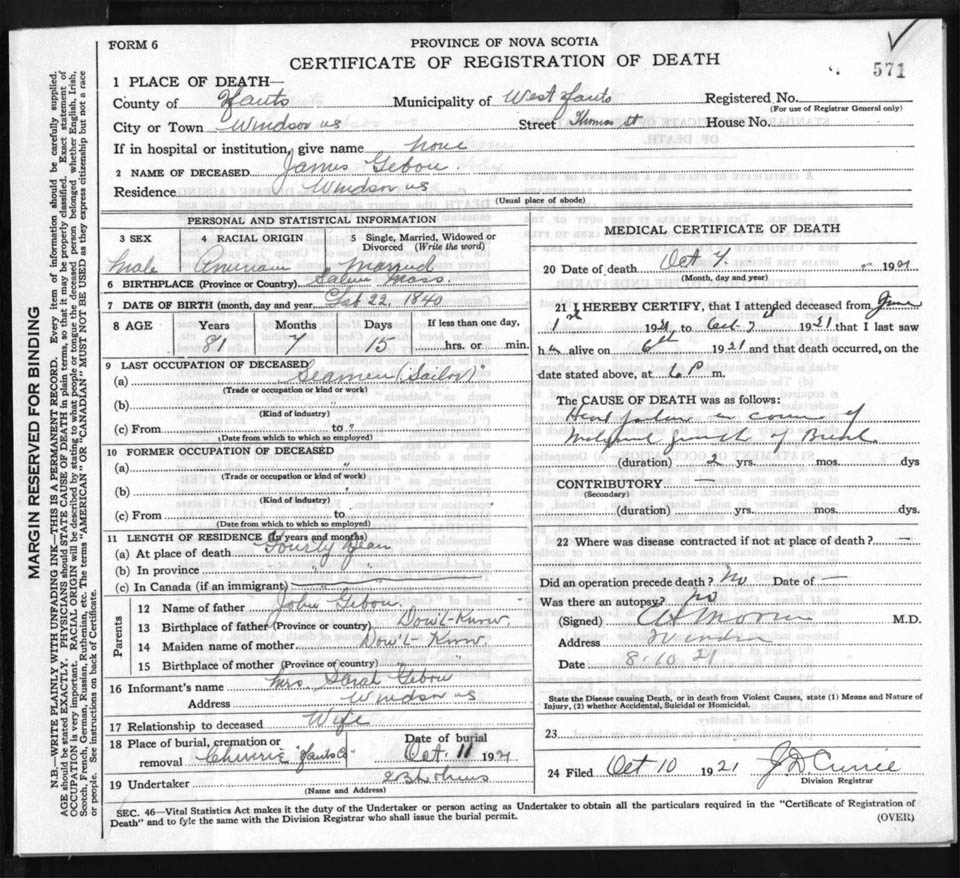 FORM 6
PROVINCE OF NOVA SCOTIA
CERTIFICATE OF REGISTRATION OF DEATH
571
1 PLACE OF DEATH—
County of Hants Municipality of West Hants Registered No.
(For use of Registrar General only)
City or Town Windsor NS Street Thomas St House No.
If in hospital or institution, give name none
2 NAME OF DECEASED James Gebou
Residence Windsor NS
(Usual place of abode)
PERSONAL AND STATISTICAL INFORMATION
3 SEX 4 RACIAL ORIGIN 5 Single, Married, Widowed or Divorced (Write the word)
Male American Married
6 BIRTHPLACE (Province or Country) Salem Mass.
7 DATE OF BIRTH (month, day and year) Feb 22, 1840
8 AGE Years Months Days If less than one day,
81 7 15 hrs. or min.
9 LAST OCCUPATION OF DECEASED
(a) Seamen (Sailor)
(Trade or occupation or kind of work)
(b)
(Kind of industry)
(c) From to "
(Date from which to which so employed)
10 FORMER OCCUPATION OF DECEASED
(a) "
(Trade or occupation or kind of work)
(b)
(Kind of industry)
(c) From to
(Date from which to which so employed)
11 LENGTH OF RESIDENCE (In years and months)
(a) At place of death Fourty Year
(b) In province " "
(c) In Canada (if an immigrant)
Parents
12 Name of father John Gebou
13 Birthplace of father (Province or country) Dow'l-Know
14 Maiden name of mother Dow'l-Know
15 Birthplace of mother (Province or country) " "
16 Informant's name Mrs. Sarah Gebou
Address Windsor NS
17 Relationship to deceased Wife
18 Place of burial, cremation or removal Cheverie "Hants Co" Date of burial Oct. 11 1921
19 Undertaker
(Name and Address)
MEDICAL CERTIFICATE OF DEATH
20 Date of death Oct 7. 1921
(Month, day and year)
21 I HEREBY CERTIFY, that I attended deceased from June
1st 1921, to Oct. 7 1921 that I last saw
h alive on 6th 1921 and that death occurred, on the
date stated above, at 6 P m.
The CAUSE OF DEATH was as follows:
Heart failure in course of
Malignant growth of Breast
(duration) 2 yrs. mos. dys
CONTRIBUTORY —
(Secondary)
(duration) yrs. mos. dys.
22 Where was disease contracted if not at place of death? —
Did an operation precede death? No Date of —
Was there an autopsy? no
(Signed) M.D.
Address Windsor
Date 8-10-21
State the Disease causing Death, or in death from Violent Causes, state (1) Means and Nature of
Injury, (2) whether Accidental, Suicidal or Homicidal.
23
24 Filed Oct 10 1921 J.D. Currie
Division Registrar
SEC. 46—Vital Statistics Act makes it the duty of the Undertaker or person acting as Undertaker to obtain all the particulars required in the "Certificate of Registration of
Death" and to fyle the same with the Division Registrar who shall issue the burial permit.
(OVER)
MARGIN RESERVED FOR BINDING
N.B.—WRITE PLAINLY WITH UNFADING INK—THIS IS A PERMANENT RECORD. Every item of information should be carefully supplied.
AGE should be stated EXACTLY. PHYSICIANS should STATE CAUSE OF DEATH in plain terms, so that it may be properly classified. Exact statement of
OCCUPATION is very important. RACIAL ORIGIN will be described by stating to what people or tongue the deceased person belonged whether English, Irish,
Scotch, French, German, Russian, Ruthenian, etc. The terms "AMERICAN" OR "CANADIAN" MUST NOT BE USED as they express citizenship but not a race
or people. See instructions on back of Certificate.